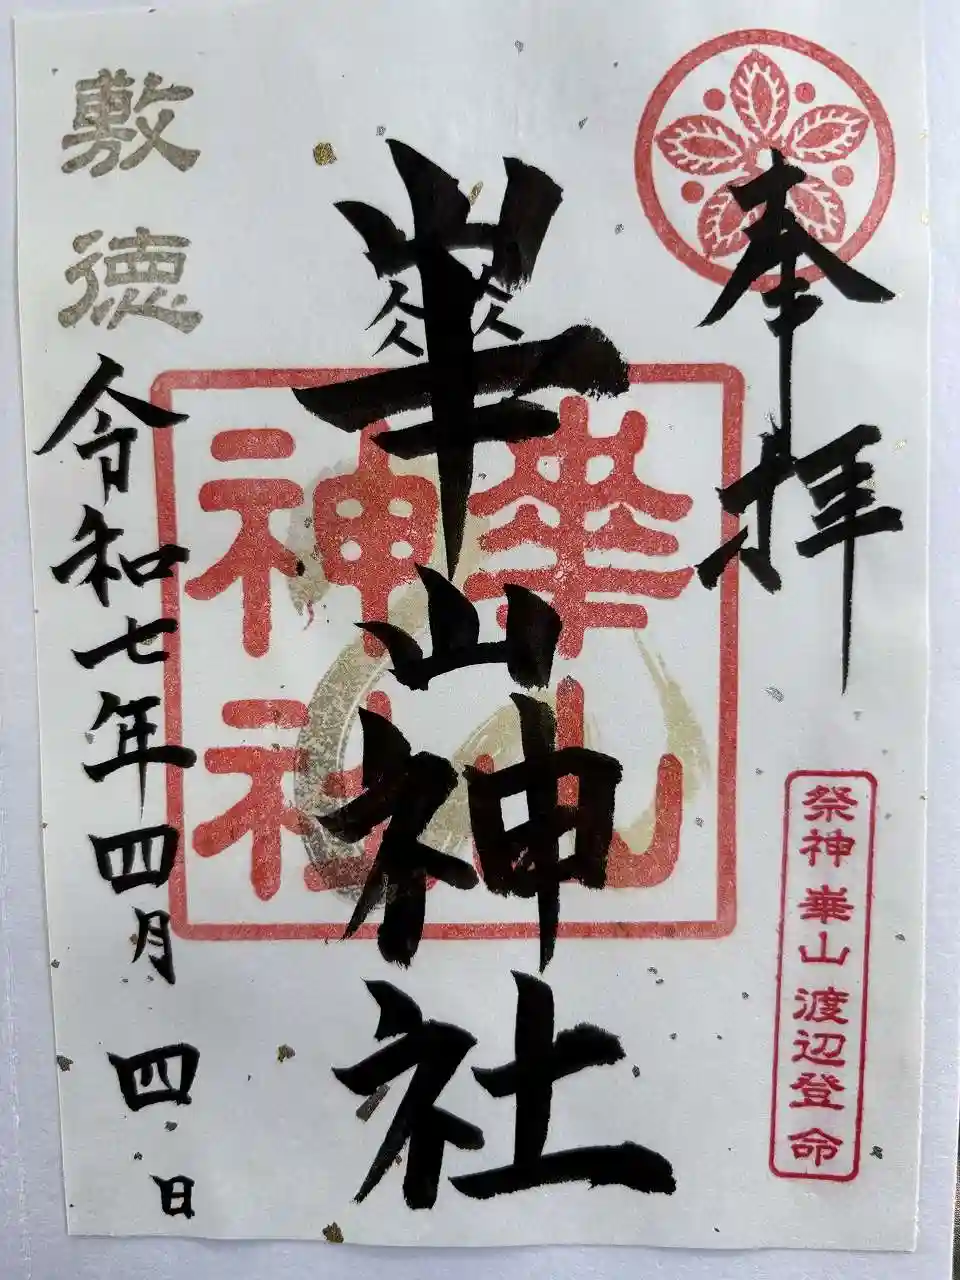 奉拝
祭神崋山渡辺登命
崋山神社
崋山
神社
敷徳
令和七年四月四日